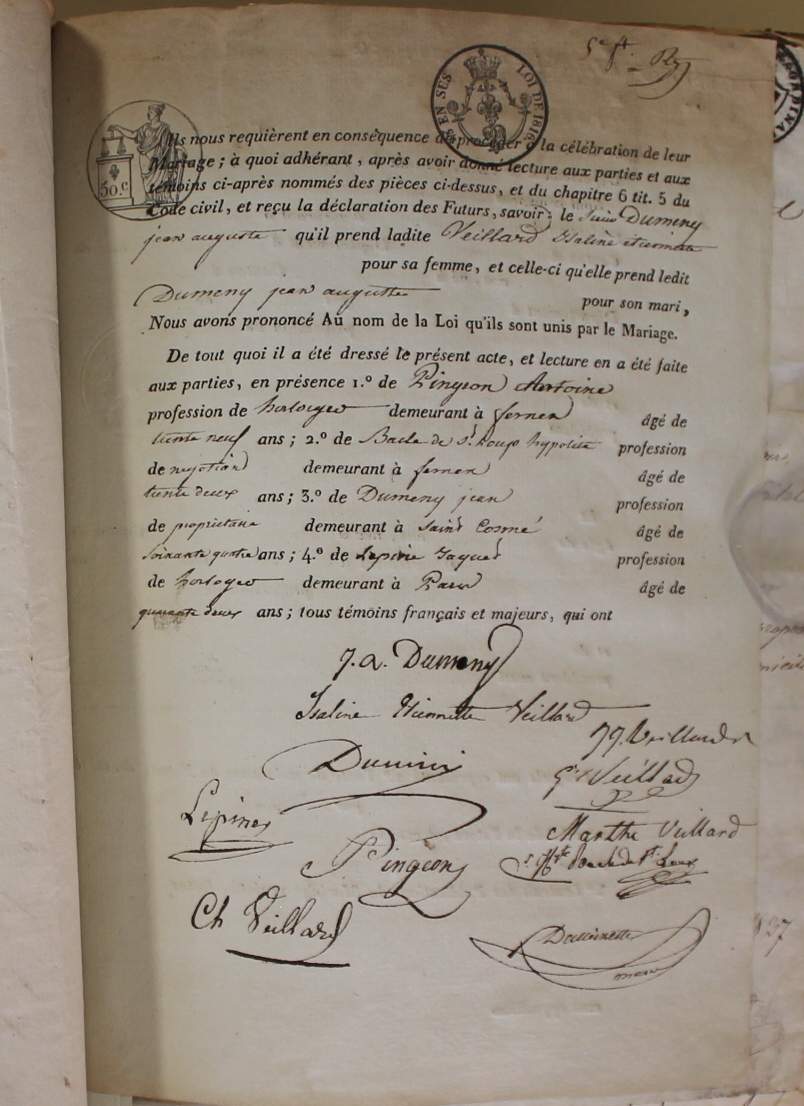 5e ft.
EN SUS LOI DE 1816
50.c
Ils nous requièrent en conséquence de procéder à la célébration de leur
Mariage; à quoi adhérant, après avoir donné lecture aux parties et aux
témoins ci-après nommés des pièces ci-dessus, et du chapitre 6 tit. 5 du
Code civil, et reçu la déclaration des Futurs, savoir; le sieur Dumeny
jean auguste qu'il prend ladite Veillard Isaline étiennette
pour sa femme, et celle-ci qu'elle prend ledit
Dumeny jean auguste pour son mari,
Nous avons prononcé Au nom de la Loi qu'ils sont unis par le Mariage.
De tout quoi il a été dressé le présent acte, et lecture en a été faite
aux parties, en présence 1.º de Pingeon Antoine
profession de horloger demeurant à fernex âgé de
trente neuf ans; 2.º de Bacle de St Loup hypolite profession
de negotian demeurant à fernex âgé de
trente deux ans; 3.º de Dumeny jean profession
de proprietaire demeurant à Saint Cosme âgé de
soixante quatre ans; 4.º de Lepine Jaques profession
de horloger demeurant à Paris âgé de
quarante deux ans; tous témoins français et majeurs, qui ont
J. A. Dumeny
Isaline Etiennette Veillard
JJ. Veillard
Dumini
Veillard
Lépine
Marthe Veillard
Pingeon
Ch Veillard
maire